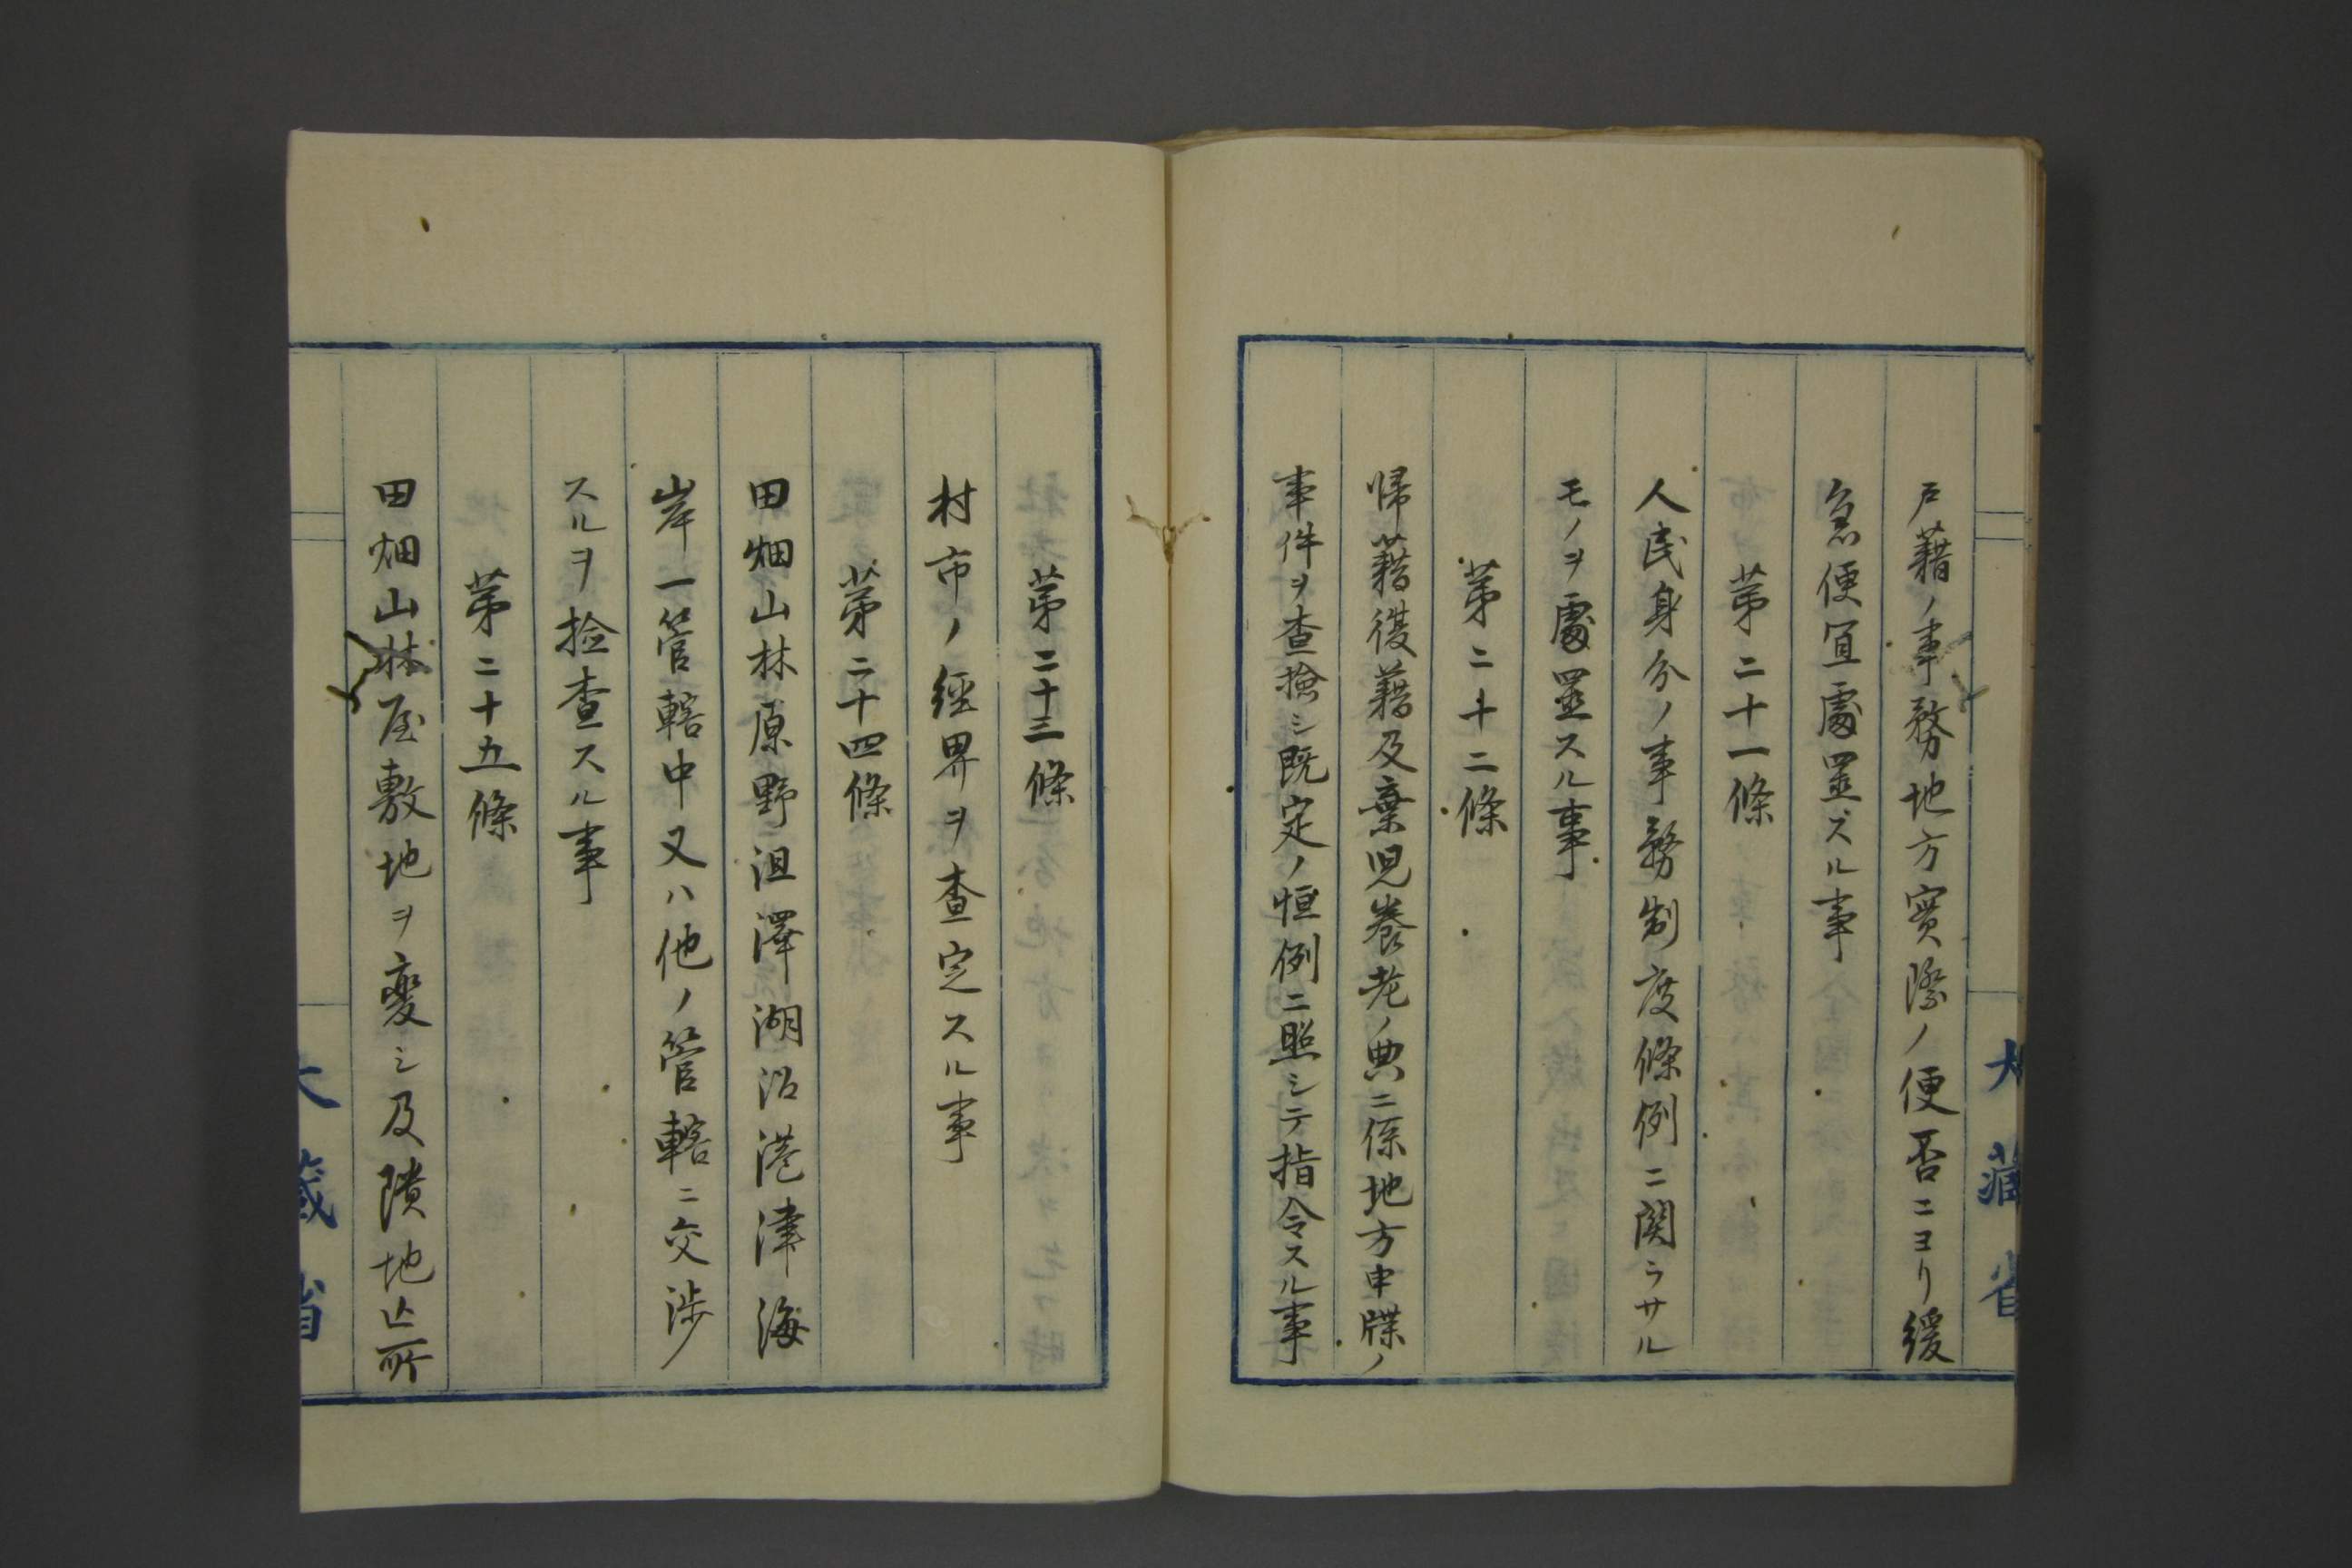 戸藉ノ事務地方實際ノ便否ニヨリ緩
急便宜處置ズル事
第二十一條
人民身分ノ事務制度條例ニ関ラサル
モノヲ處置スル事
第二十二條
帰藉復藉及棄児養老ノ典ニ係地方申牒ノ
事件ヲ査撿シ既定ノ恒例ニ照シテ指令スル事
大藏省
第二十三條
村市ノ經界ヲ査定スル事
第二十四條
田畑山林原野沮澤湖沼港津海
岸一管轄中又ハ他ノ管轄ニ交渉
スルヲ撿査スル事
第二十五條
田畑山林屋敷地ヲ変シ及隤地止所
大藏省